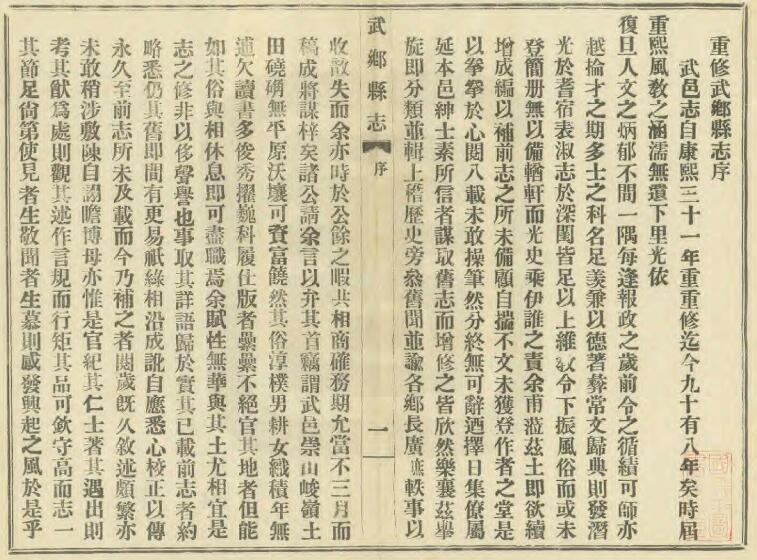 重修武鄉縣志序
武邑志自康熙三十一年重修迄今九十有八年矣時屆
重熙風敎之涵濡無遺下里光依
復旦人文之炳郁不間一隅每逢報政之歲前令之循績可師亦
越掄才之期多士之科名足羨兼以德著彝常文歸典則發潛
光於耆宿表淑志於深閨皆足以上維敎令下振風俗而或未
登簡册無以備輶軒而光史乘伊誰之責余甫蒞茲土即欲續
增成編以補前志之所未備顧自揣不文未獲登作者之堂是
以拳拳於心閱八載未敢操筆然分終無可辭迺擇日集僚屬
延本邑紳士素所信者謀取舊志而增修之皆欣然樂襄茲舉
旋即分類並輯上稽歷史旁叅舊聞並諭各鄉長廣
軼事以
武鄉縣志
序
一
收散失而余亦時於公餘之暇共相商確務期允當不三月而
稿成將謀梓矣諸公請余言以弁其首竊謂武邑崇山峻嶺土
田磽确無平原沃壤可資富饒然其俗淳樸男耕女織積年無
逋欠讀書多俊秀擢巍科履仕版者纍纍不絕官其地者但能
如其俗與相休息即可盡職焉余賦性無華與其土尤相宜是
志之修非以侈聲譽也事取其詳語歸於實其已載前志者約
略悉仍其舊即間有更易祇緣相沿成訛自應悉心校正以傳
永久至前志所未及載而今乃補之者閱歲旣久敘述頗繁亦
未敢稍涉敷陳自詡瞻博毋亦惟是官紀其仁士著其遇出則
考其猷爲處則觀其述作言規而行矩其品可欽守高而志一
其節足尙第使見者生敬聞者生慕則感發興起之風於是乎